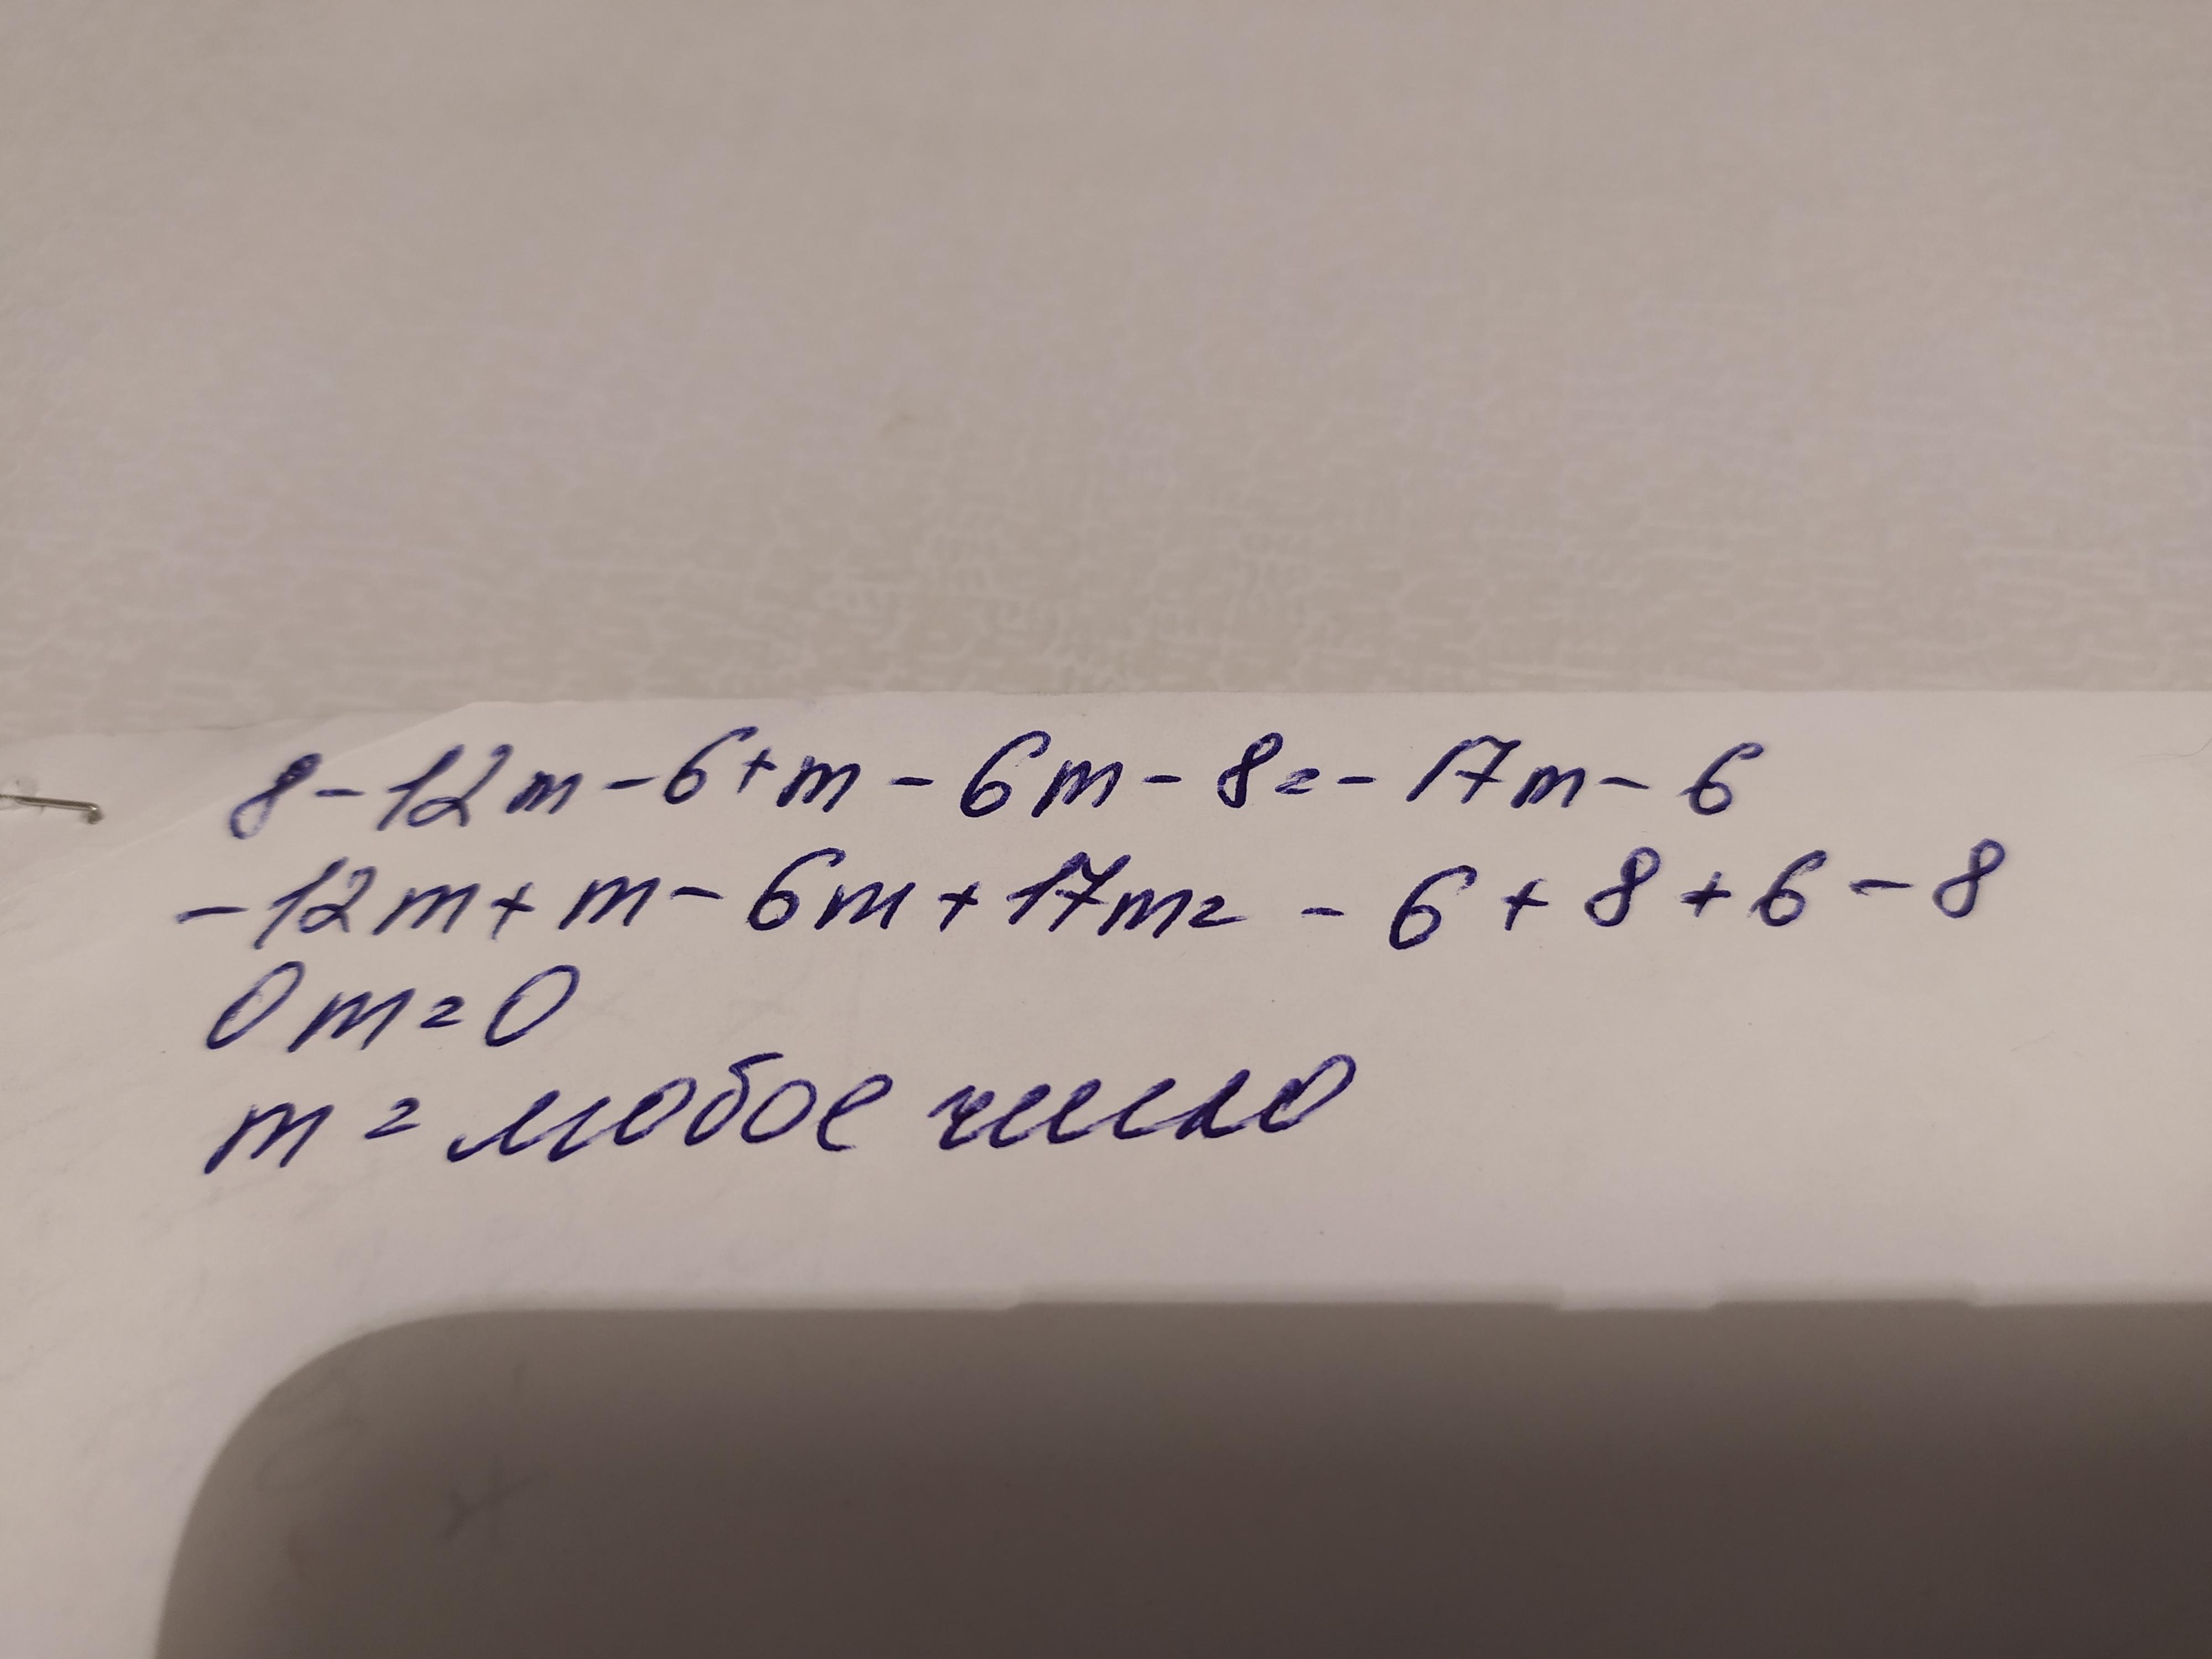 8-12m-6+m-6m-8=-17m-6
-12m+m-6m+17m=-6+8+6-8
0m=0
m=любое число